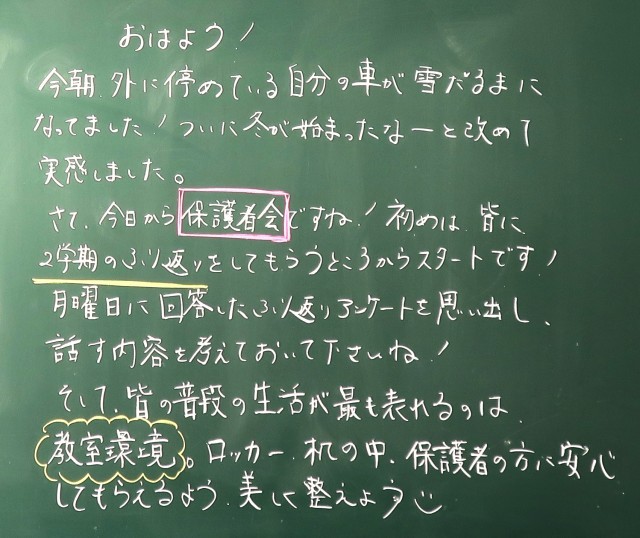 おはよう!
今朝、外に停めている自分の車が雪だるまに
なってました!ついに冬が始まったなーと改めて
実感しました。
さて、今日から保護者会ですね!初めは、皆に
2学期のふり返りをしてもらうところからスタートです!
月曜日に回答したふり返りアンケートを思い出し、
話す内容を考えておいて下さいね!
そして、皆の普段の生活が最も表れるのは、
教室環境。ロッカー、机の中、保護者の方に安心
してもらえるよう、美しく整えよう